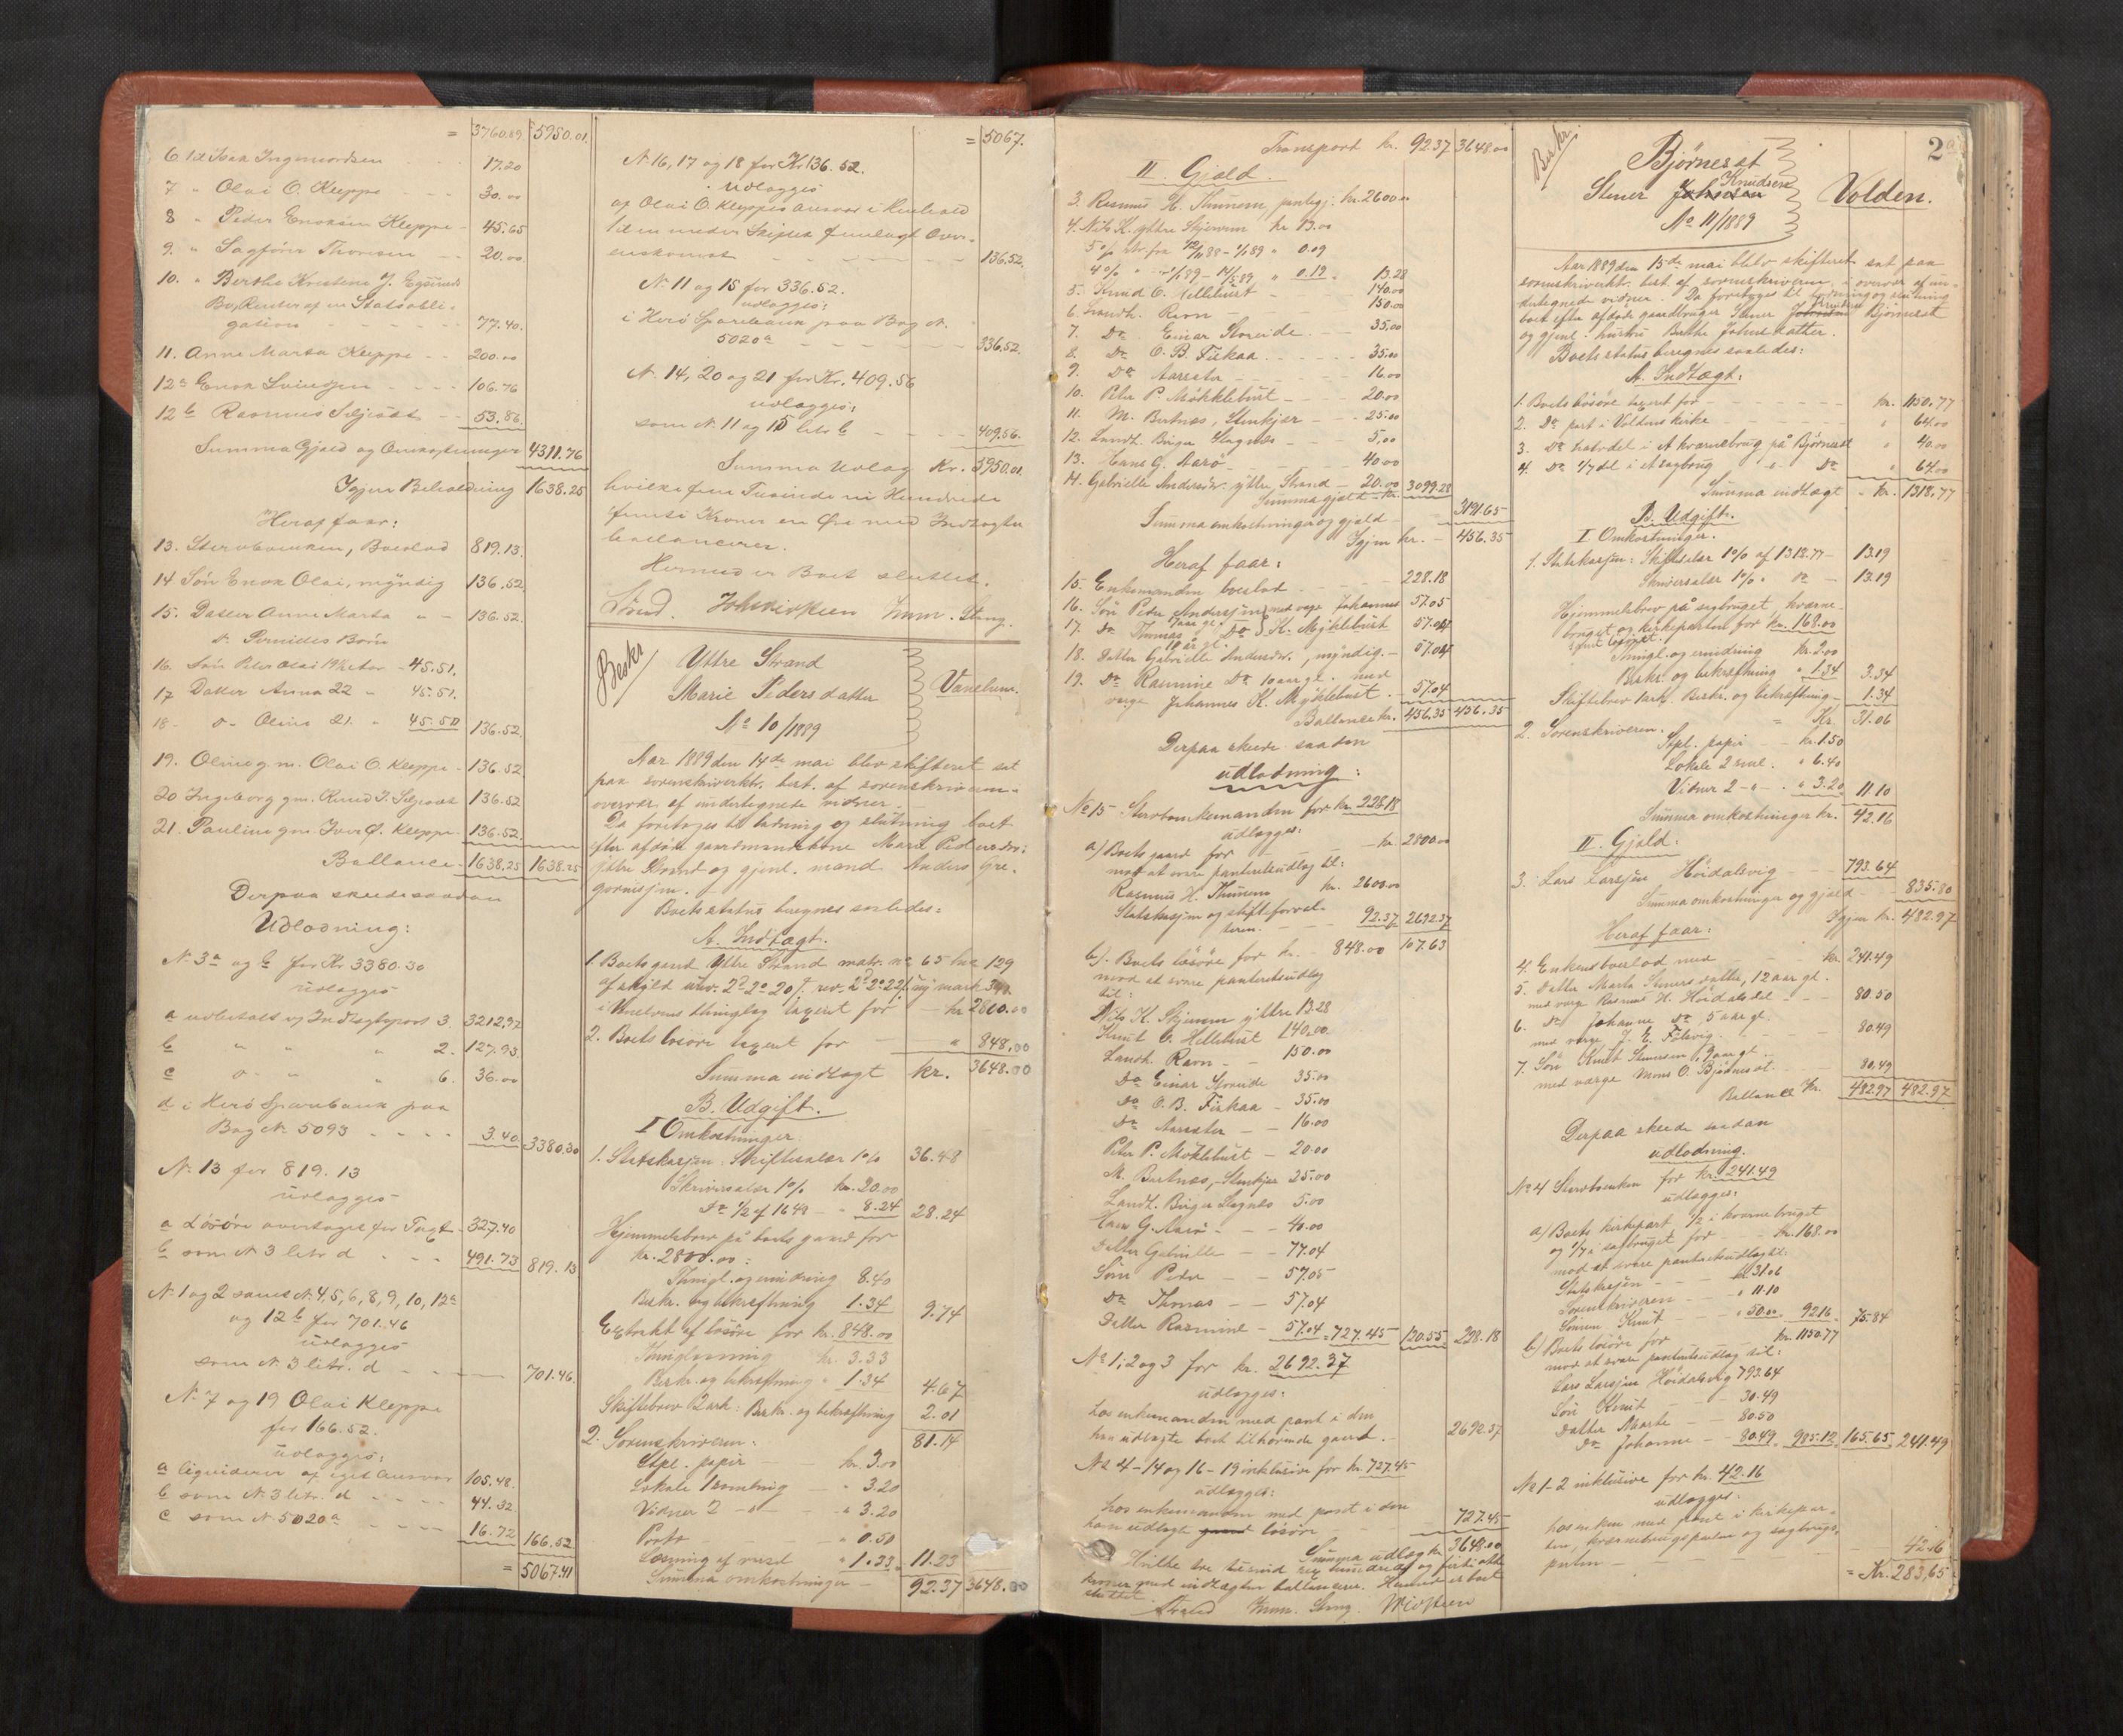 = 3760.89 5950.01
6. til Isak Ingmundsen 17.20
7 " Olai O. Kleppe 30.00
8 " Peder Enoksen Kleppe 45.65
9. " Sagfører Thoresen 20.00
10. " Berthe Kristine
Bo, Renter af en Statsobli-
gation 77.40.
11. Anne Marta Kleppe 200.00
12a Enok Svindsen 106.76
12b Rasmus Seljeset 53.86
Summa Gjæld og Omkostninger 4311.76
Igjen Beholdning 1638.25
Heraf faar:
13. Stervboenken, Boeslod 819.13.
14 Søn Enok Olai, myndig 136.52
15. Datter Anne Marta " 136.52.
d. Pernilles Børn
16. Søn Peter Olai 19½ Aar 45.51.
17 Datter Anna 22 " 45.51.
18 - d- Oline 21. " 45.50 136.52.
19. Oline g. m. Olai O. Kleppe - 136.52
20 Ingeborg gm. Knud J. Seljeset 136.52
21. Pauline gm. Iver O. Kleppe - 136.52.
Ballance - 1638.25 1638.25
Derpaa skede saadan
Udlodning:
N. 3a og b for Kr 3380.30
udlægges
a udbetalt v/ Indtægtspost 3. 3212.97
b " " " 2. 127.93
c " " " 6. 36.00
d i Herø Sparebank paa
Bog N. 5093 3.40 3380.30
N. 13 for 819.13
udlægges
a Løsøre overtaget for Taxt 327.40
b som N 3 litr. d 491.73 819.13
N. 1 og 2 samt N. 4, 5, 6, 8, 9, 10, 12a
og 12b for 701.46
udlægges
som N. 3 litr. d 701.46.
N. 7 og 19 Olai Kleppe
for 166.52.
udlægges:
a liquiderer af eget Ansvar 105.48.
b som N. 3 litr. d 44.32
c som N. 5020a 16.72 166.52
= 5067.41
= 5067.
N. 16, 17 og 18 for Kr 136.52.
udlægges
af Olai O. Kleppes Ansvar i Henhold
til en under Skiftet fremlagt Over-
enskomst 136.52.
N. 11 og 15 for 336.52.
udlægges:
i Herø Sparebank paa Bog N.
5020a 336.52.
N. 14, 20 og 21 for Kr. 409.56
udlægges:
som N. 11 og 15 litr. b 409.56.
Summa Udlæg Kr. 5950.01
hvilke fem Tusinde ni Hundrede
femti Kroner en Øre med Indtægten
ballancerer.
Hermed er Boet sluttet.
Beskr
Yttre Strand
Marie Pedersdatter
No 10/1889
Vanelven.
Aar 1889 den 14de mai blev skifteret sat
paa sorenskriverktr. best. af sorenskriveren
overvær af undertegnede vidner.
Da foretoges til lodning og slutning boet
efter afdøde gaardmandskone Marie Pedersdtr.
yttre Strand og gjenl. mand Anders Gre-
goriussen.
Boets status beregnes saaledes:
A. Indtægt.
1. Boets gaard Yttre Strand matr. no 65 lno 129
i Vanelvens thinglag taxeret for kr 2800.00
2. Boets løsøre taxeret for " 848.00
Summa indtægt kr. 3648.00
B. Udgift.
I Omkostninger
1. Statskassen: Skiftesalær 1% 36.48
Skriversalær 1% kr. 20.00
Do ½ af 1648 - " 8.24 28.24
Hjemmelsbrev på boets gaard for
kr. 2800.00:
Thingl. og emidring 8.40
Beskr. og bekræftning 1.34 9.74
Extrakt af løsøre for kr. 848.00
Thinglæsning kr. 3.33
Beskr. og bekræftning " 1.34 4.67
Skiftebrev 2 ark: Beskr. og bekræftning 2.01
81.14
2. Sorenskriveren:
Stpl. papir kr. 3.00
Lokale 1 samling " 3.20
Vidner 2 - " - " 3.20
Porto " 0.50
Læsning af " 1.33 11.23
Summa omkostninger - 92.37 3648.00
Transport kr. 92.37 3648.00
II. Gjæld.
3. Rasmus H. Thunem, pantegj. kr. 2600.00
4. Nils K. yttre Stjervem kr 13.00
5% " 0.09
4% " 0.19 13.28
5. Knud O. Hellebust 140.00
6. Landh. Ravn 150.00
7. Do Einar Storeide 35.00
8. Do O. B. Fiskaa 35.00
9. Do Aarsæter 16.00
10. Peter P. Møklebust 20.00
11. M. Bertnæs, Stenkjær 25.00
12. Landh. Birger Hagnæs 5.00
13. Hans G. Aarø 40.00
14. Gabrielle Andersdtr. yttre Strand 20.00 3099.28
Summa gjæld kr.
Summa omkostninger og gjæld 3191.65
Igjen kr. 456.35
Heraf faar:
15. Enkemanden boeslod 228.18
16. Søn Peder Anderssen med verge Johannes 57.05
17. Do Thomas Do K. Myklebust 57.04
18. Datter Gabrielle Andersdtr., myndig. 57.04
19. Do Rasmine Do 10 aar gl. med
verge Johannes K. Myklebust. 57.04
Ballance kr. 456.35 456.35
Derpaa skede saadan
udlodning:
No 15 Stervboenkemanden for kr. 228.18
udlægges:
a) Boets gaard for kr. 2800.00
mod at svare panteretsudlæg til:
Rasmus H. Thunem kr. 2600.00
Statskassen og skifteforval-
teren. 92.37 2692.37
107.63
b). Boets løsøre for kr. 848.00
mod at svare panteretsudlæg
til:
Nils K. Stjervem yttre 13.28
Knut O. Hellebust 140.00
Landh. Ravn 150.00
Do Einar Storeide 35.00
Do O. B. Fiskaa 35.00
Do Aarsæter 16.00
Peter P. Møklebust 20.00
M. Bertnæs, Stenkjær 25.00
Landh. Birger Hagnæs 5.00
Hans G. Aarø 40.00
Datter Gabrielle 77.04
Søn Peder 57.05
Do Thomas 57.04
Datter Rasmine 57.04 727.45 120.55 228.18
No 1, 2 og 3 for kr. 2692.37
udlægges:
hos enkemanden med pant i den
ham udlagte boet tilhørende gaard. 2692.37
No 4-14 og 16-19 inklusive for kr. 727.45
udlægges:
hos enkemanden med pant i den
ham udlagte gaard løsøre 727.45
Summa udlæg kr 3648.00
Hvilke tre tusind sex hundrede og firti otte
kroner med indtægten ballancerer. Hermed er boet
sluttet.
2a
Beskr.
Bjørneset
Stener Johnsen Knudsen
No 11/1889
Volden.
Aar 1889 den 15de mai blev skifteret sat paa
sorenskriverktr. best. af sorenskriveren i overvær af un-
dertegnede vidner. Da foretoges til lodning og slutning
boet efter afdøde gaardbruger Stener Johnsen Knudsen Bjørneset
og gjenl. hustru Berthe Johnsdatter.
Boets status beregnes saaledes:
A. Indtægt:
1. Boets løsøre taxeret for kr. 1150.77
2. Do part i Voldens kirke " 64.00
3. Do halvdel i et kværnebrug på Bjørneset " 40.00
4. Do 1/7 del i et sagbrug " Do " 64.00
Summa indtægt - kr. 1318.77
B. Udgift.
I Omkostninger.
1. Statskassen: Skiftesalær 1% af 1318.77 13.19
Skriversalær 1% " Do 13.19
Hjemmelsbrev på sagbruget, kværne-
bruget og kirkeparten for kr. 168.00
Thingl. og emidring kr. 2.00
Beskr. og bekræftning " 1.34 3.34
Skiftebrev 1 ark. Beskr. og bekræftning 1.34
Kr. 31.06
2. Sorenskriveren.
Stpl. papir kr. 1.50
Lokale 2 saml. " 6.40
Vidner 2 - " - " 3.20 11.10
Summa omkostninger kr. 42.16
II. Gjæld:
3. Lars Larssen Høidalsvig 793.64
Summa omkostninger og gjæld 835.80
Igjen kr. 482.97
Heraf faar:
4. Enken boeslod med kr. 241.49
5. Datter Marta Stenersdatter, 12 aar gl.
med verge Rasmus H. Høidalsdal 80.50
6. Do Johanne Do 5 aar gl.
med verge J. E. Folsvig 80.49
7. Søn Knut Stenersen aar gl.
med værge Mons O. Bjørneset 80.49
Ballance kr. 482.97 482.97
Derpaa skede saadan
udlodning.
No 4 Stervboenken for kr. 241.49
udlægges:
a) Boets kirkepart ½ i kværnebruget
og 1/7 i sagbruget for kr. 168.00
mod at svare panteretsudlæg til:
Statskassen kr. 31.06
Sorenskriveren " 11.10
Sønnen Knut " 50.00 92.16 75.84
b) Boets løsøre for kr. 1150.77
mod at svare panteretsudlæg til:
Lars Larssen Høidalsvig 793.64
Søn Knut 30.49
Datter Marte 80.50
Do Johanne 80.49 985.12 165.65 241.49
No 1-2 inklusive for kr. 42.16
udlægges:
hos enken med pant i kirkepar-
ten, kværnebrugsparten og sagbrugs-
parten 42.16
= Kr. 283.65